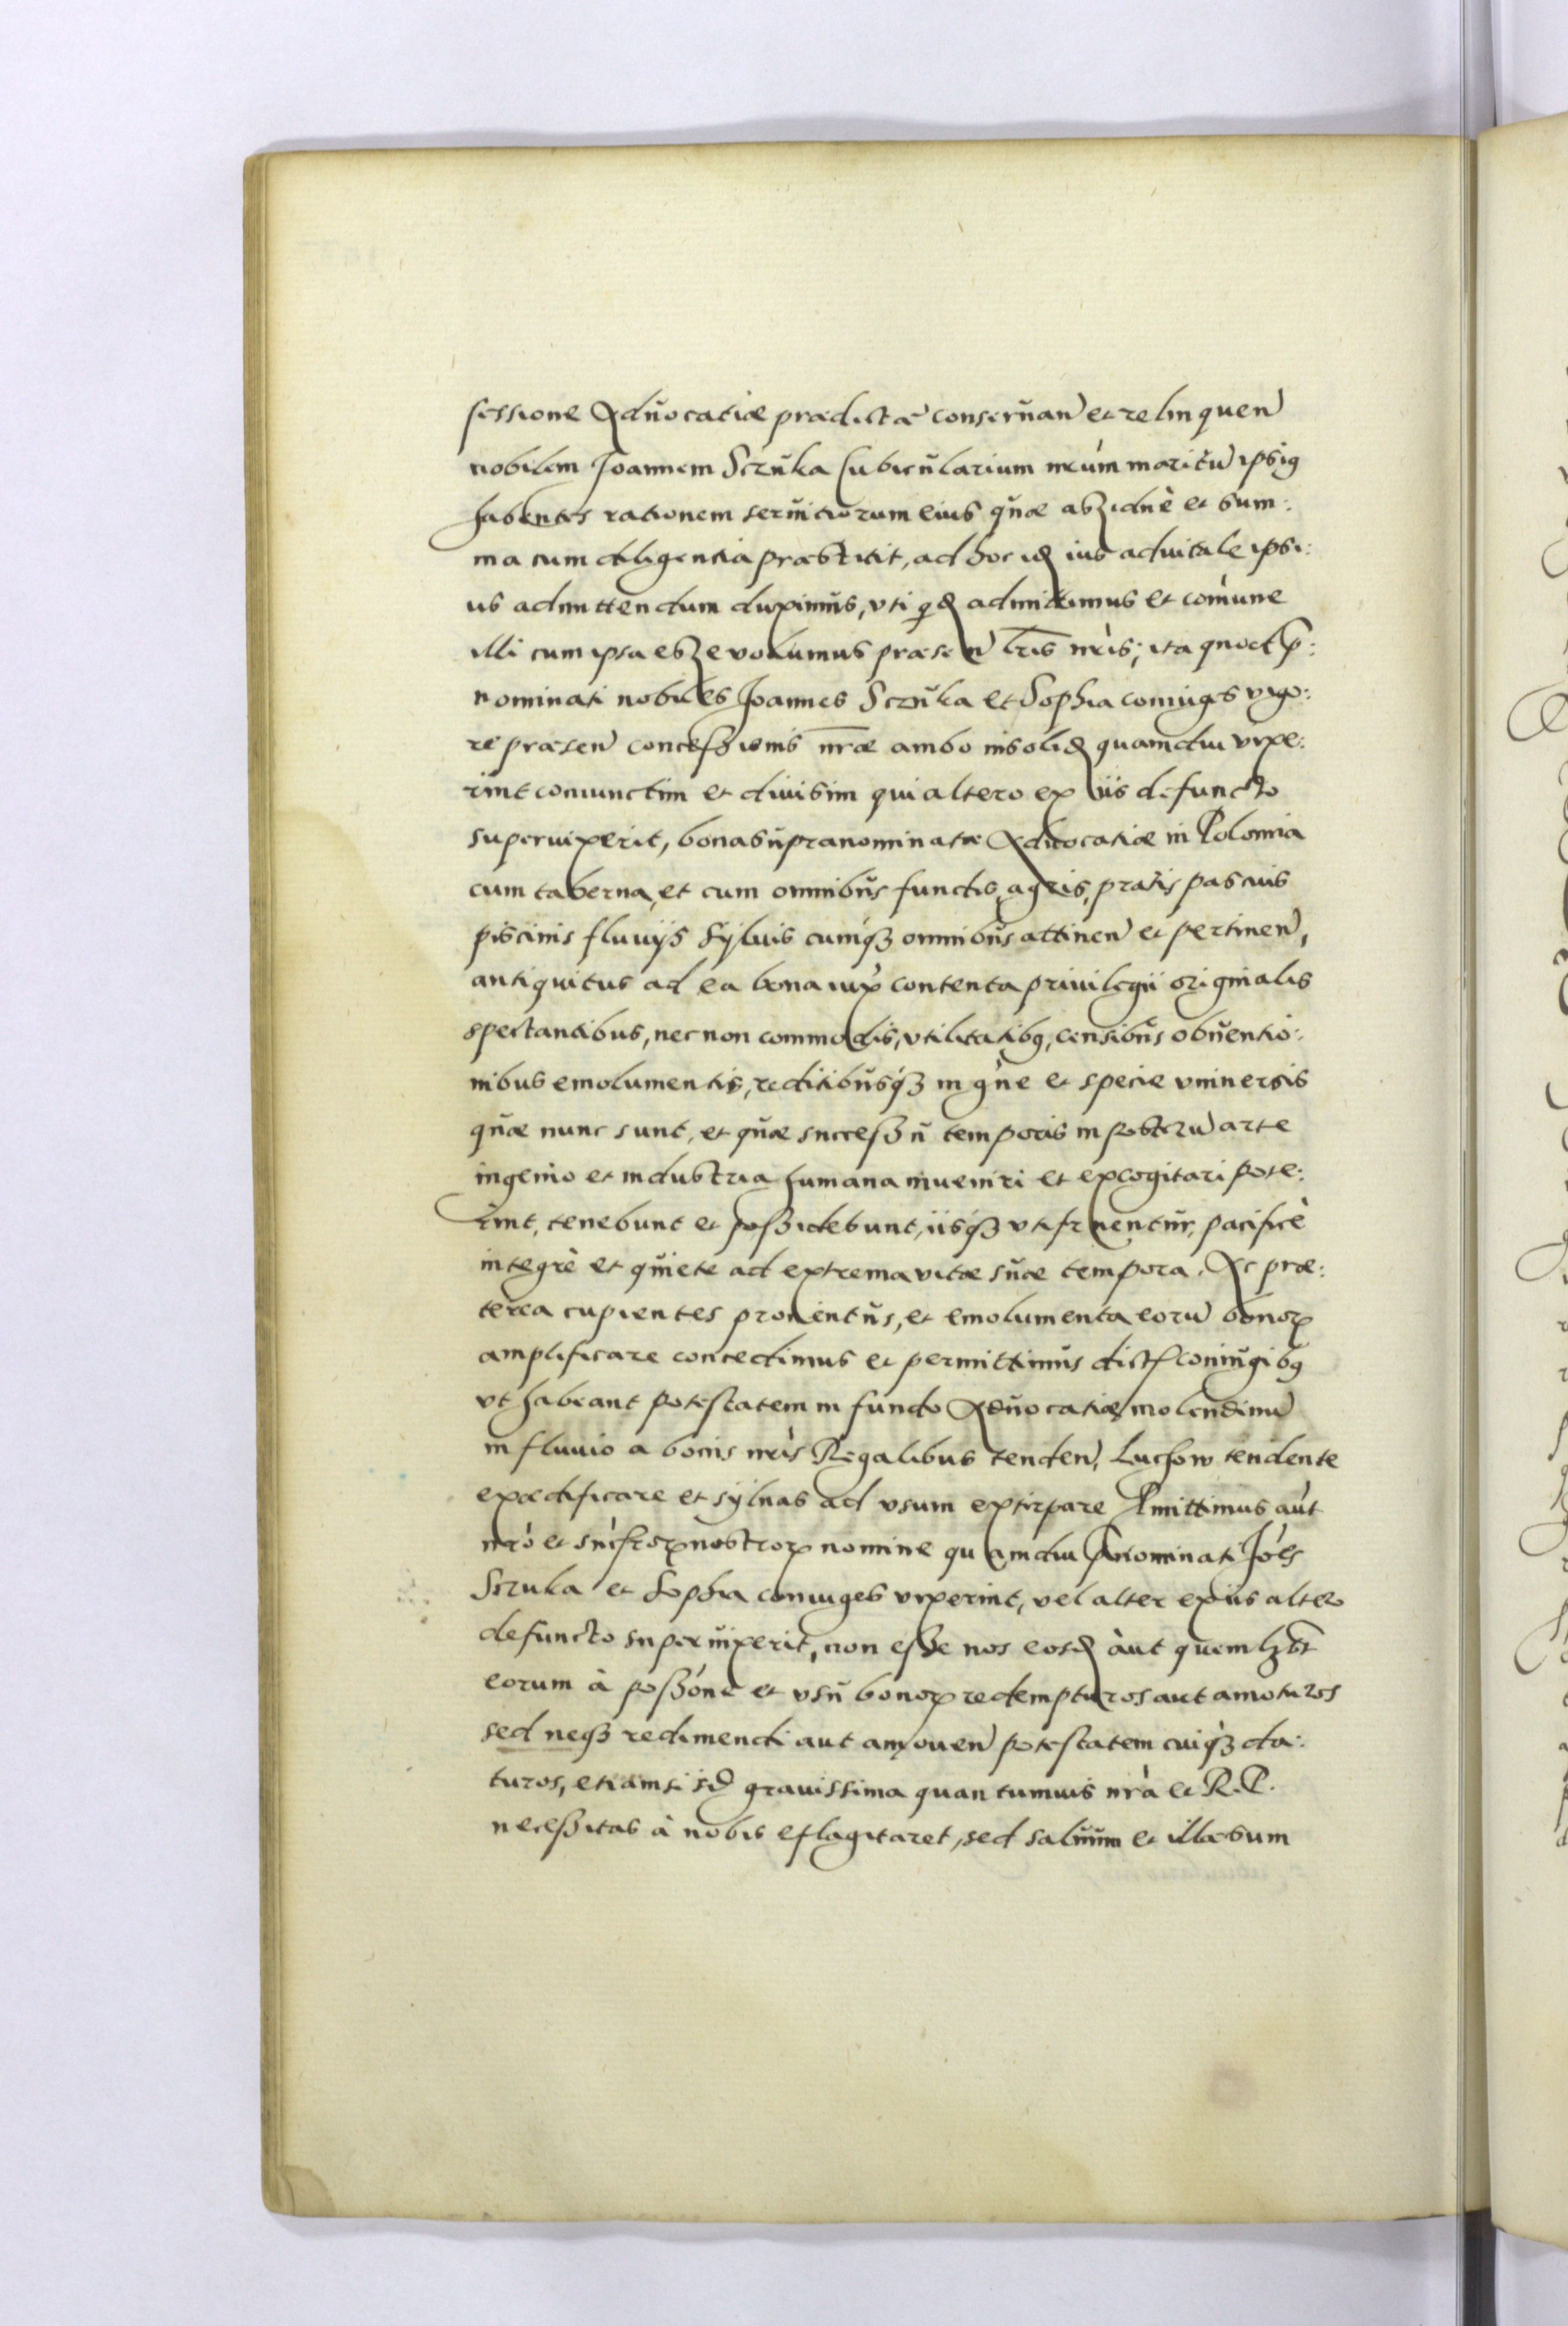 sessione Aduocatiæ prædictæ conseruan̄ et relinquen̄
nobilem Joannem Sczuka Cubicularium nr̃um maritũ ipsiꝰ
habentes rationem seruitiorum eius quæ assiduè et sum:
ma cum diligentia præstitit, ad hoc idꝫ ius aduitale ipsi:
us admittendum duximus, uti qđ admittimus et com̃une
illi cum ipsa esse volumus præsen̄ lr̃is nr̃is; ita quod p̃:
nominati nobiles Joannes Sczuka et Sophia coniuges vigo:
re præsen̄ concessionis nr̃æ ambo insolidꝫ quamdiu vixe:
rint coniunctim et diuisim qui altero ex iis defuncto
superuixerit, bona supranominatæ Aduocatiæ in Polomia
cum taberna, et cum omnibus fundis, agris, pratis pascuis
piscinis fluuijs syluis cumqꝫ omnibus attinen̄ et pertinen̄,
antiquitus ad ea bona iux̃ contenta priuilegii originalis
spectantibus, nec non commodis, vtilitatibꝰ, censibus obuentio:
nibus emolumentis, reditibusqꝫ in gñe et specie vniuersis
quæ nunc sunt, et quæ successu temporis in posterũ arte
ingenio et industria humana inueniri et excogitari pote:
rint, tenebunt et possidebunt, iisqꝫ vtifruentur, pacificè
integrè et quiete ad extrema vitæ suæ tempora. Ac præ:
terea cupientes prouentus, et emolumenta eorũ bonoꝝ
amplificare concedimus et permittimus dict̃ coniugibꝰ
vt habeant potestatem in fundo Aduocatiæ molendinũ
in fluuio a bonis nr̃is Regalibus tenden̄, Luchow tendente
exædificare et syluas ad vsum extirpare Pmittimus aũt
nr̃o et sũcssoꝝ nostroꝝ nomine quamdiu p̃nominati Jões
Sczuka et Sophia coniuges vixerint, vel alter ex iis altero
defuncto superuixerit, non esse nos eosdꝫ aut quemlꝫt
eorum à possõne et vsu bonoꝝ redempturos aut amoturos
sed neqꝫ redimendi aut amouen̄ potestatem cuiqꝫ da:
turos, etiamsi id grauissima quantumuis nr̃a et R.P.
necessitas à nobis eflagitaret, sed saluum et illæsum